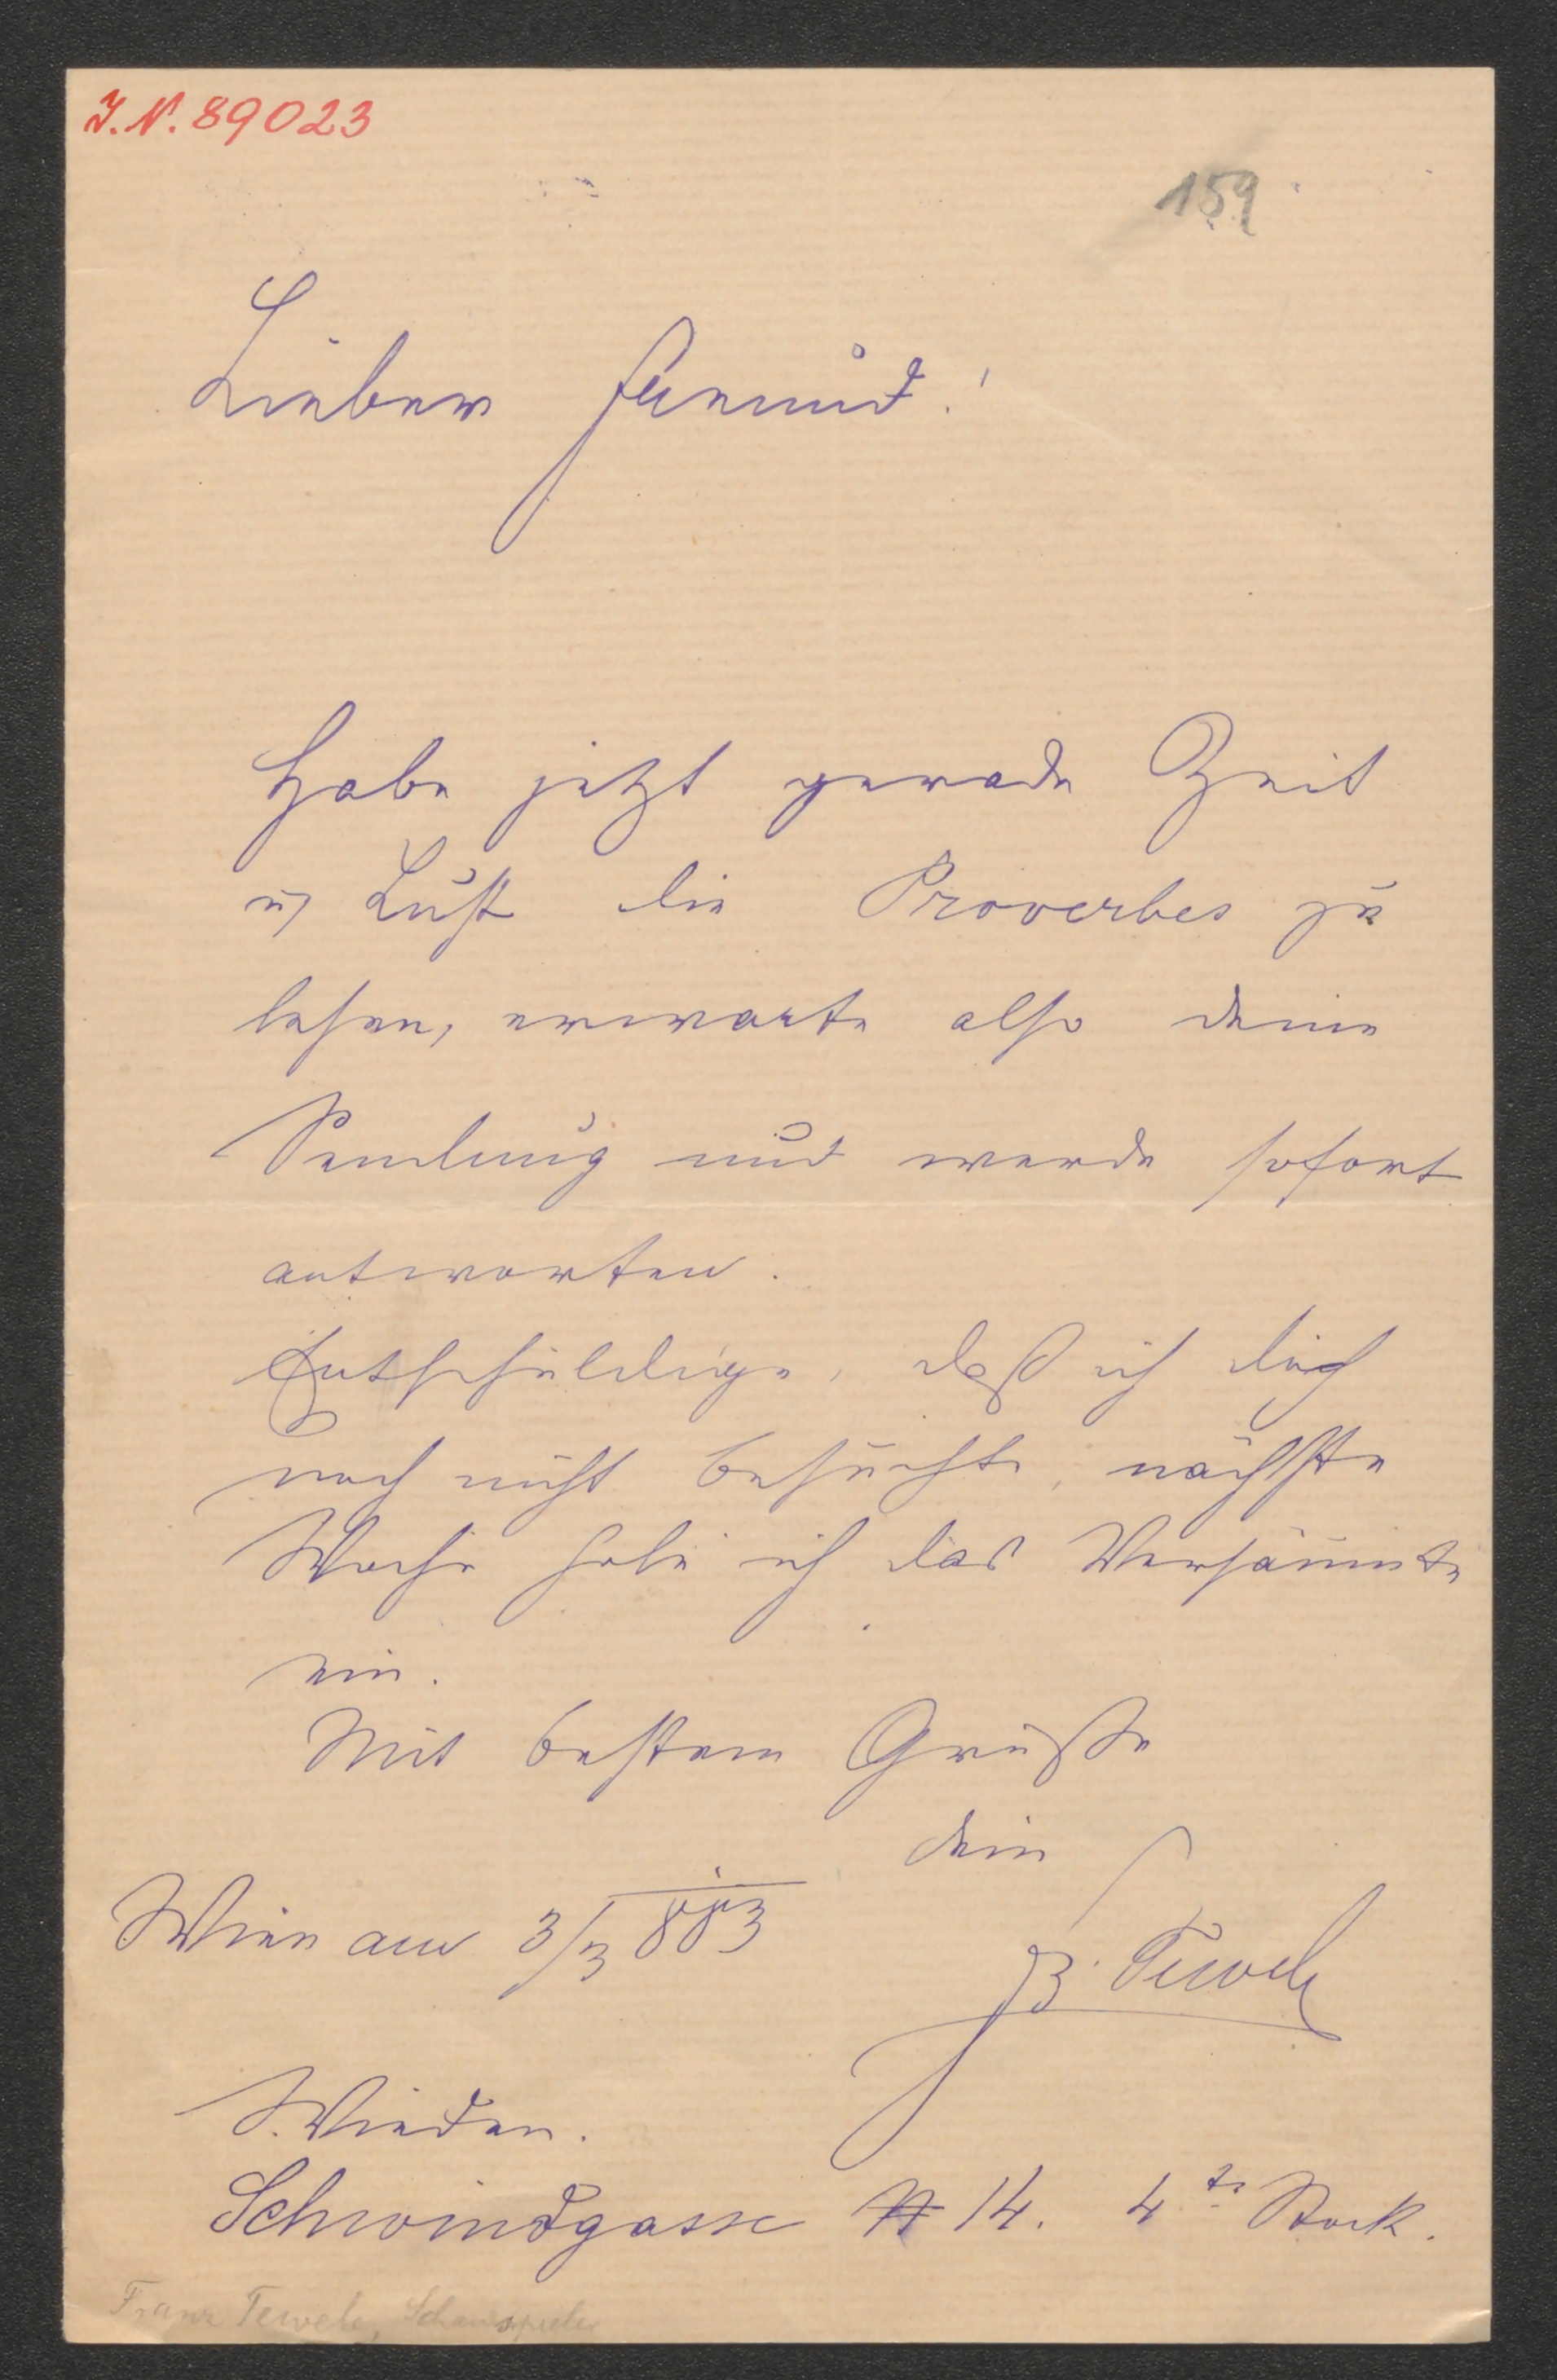 J.N. 89023
159
Lieber Freund!
Habe jetzt gerade Zeit
u Lust die Proverbes zu
lesen, erwarte also deine
Sendung und werde sofort
antworten.
Entschuldige, daß ich dich
noch nicht besuchte, nächste
Woche hole ich das Versäumte
ein.
Mit bestem Gruße
dein
Wien am 3/3 883
Tewele
Wieden.
Schwindgasse N 14. 4te Stock.
Franz Tewele, Schauspieler